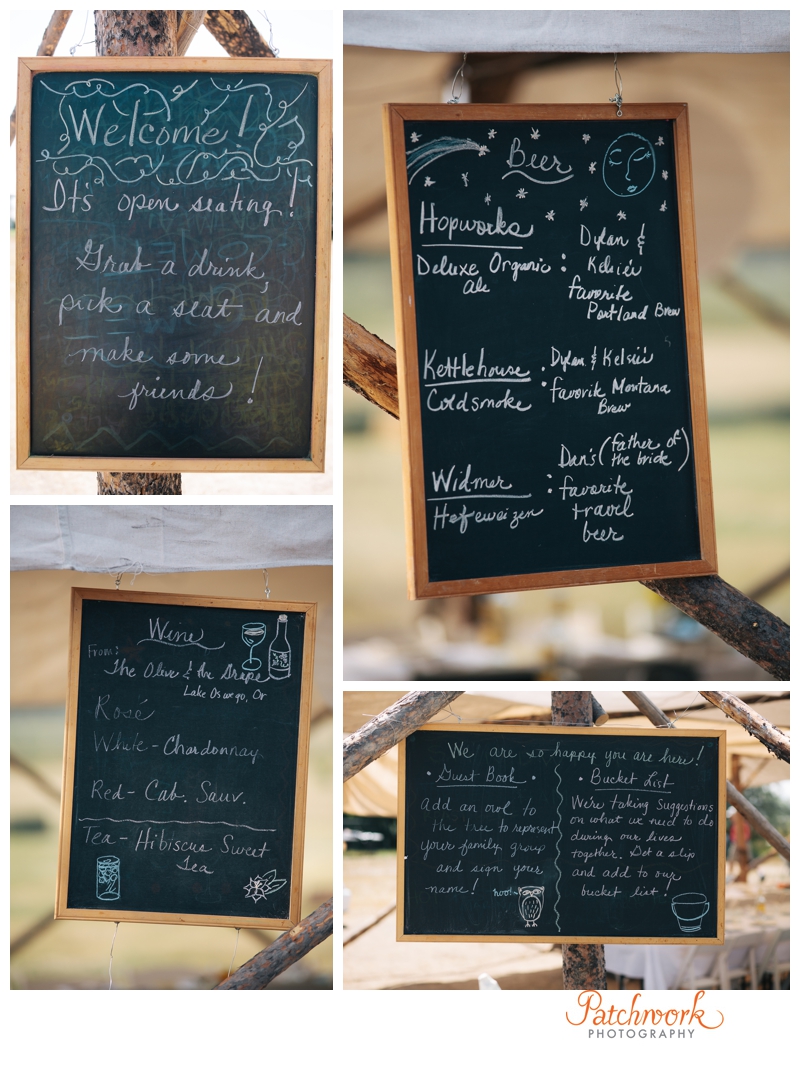 Welcome!
It's open seating!
Grab a drink,
pick a seat and
make some
friends!
Beer
Hopworks
Deluxe Organic
Ale
:
Dylan &
Kelsie's
favorite
Portland Brew
Kettlehouse
Coldsmoke
:
Dylan & Kelsie's
favorite Montana
Brew
Widmer
Hefeweizen
:
Dan's (father of
the bride)
favorite
travel
beer
Wine
From:
The Olive & the Grape
Lake Oswego, Or
Rosé
White - Chardonnay
Red - Cab. Sauv.
Tea - Hibiscus Sweet
Tea
We are so happy you are here!
• Guest Book •
Add an owl to
the tree to represent
your family group
and sign your
name!
hoot!
• Bucket List
We're taking suggestions
on what we need to do
during our lives
together. Dot a slip
and add to our
bucket list!
Patchwork
PHOTOGRAPHY